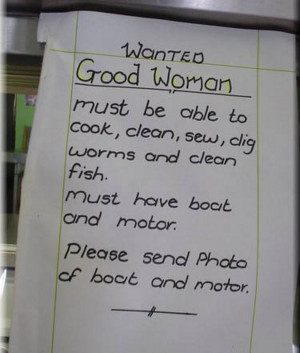 WANTED
Good Woman
must be able to
cook, clean, sew, dig
worms and clean
fish.
Must have boat
and motor.
Please send Photo
of boat and motor.